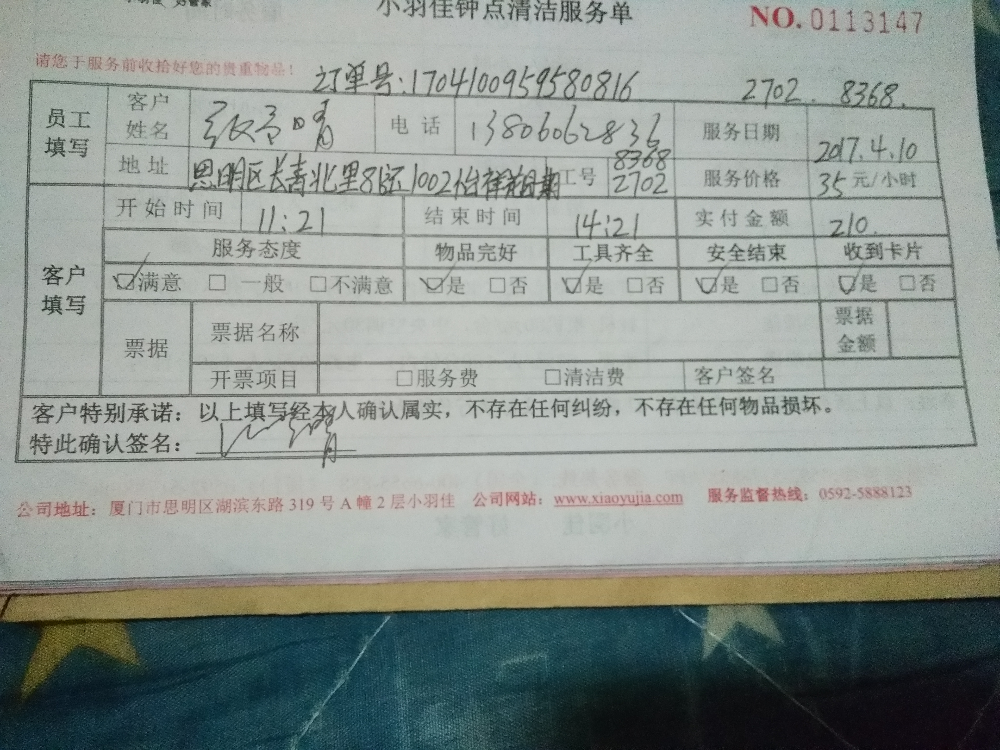 小羽佳 好管家
小羽佳钟点清洁服务单
NO. 0113147
请您于服务前收拾好您的贵重物品！
订单号:1704100959580816 2702. 8368.
员工填写 客户姓名 电话 13806062836 服务日期 2017.4.10
地址 思明区长青北里8号 1002 工号 8368 2702 服务价格 35元/小时
客户填写 开始时间 11:21 结束时间 14:21 实付金额 210.
服务态度 物品完好 工具齐全 安全结束 收到卡片
☑满意 □一般 □不满意 ☑是 □否 ☑是 □否 ☑是 □否 ☑是 □否
票据 票据名称 票据金额
开票项目 □服务费 □清洁费 客户签名
客户特别承诺：以上填写经本人确认属实，不存在任何纠纷，不存在任何物品损坏。
特此确认签名：
公司地址：厦门市思明区湖滨东路 319 号 A 幢 2 层小羽佳 公司网站：www.xiaoyujia.com 服务监督热线：0592-5888123